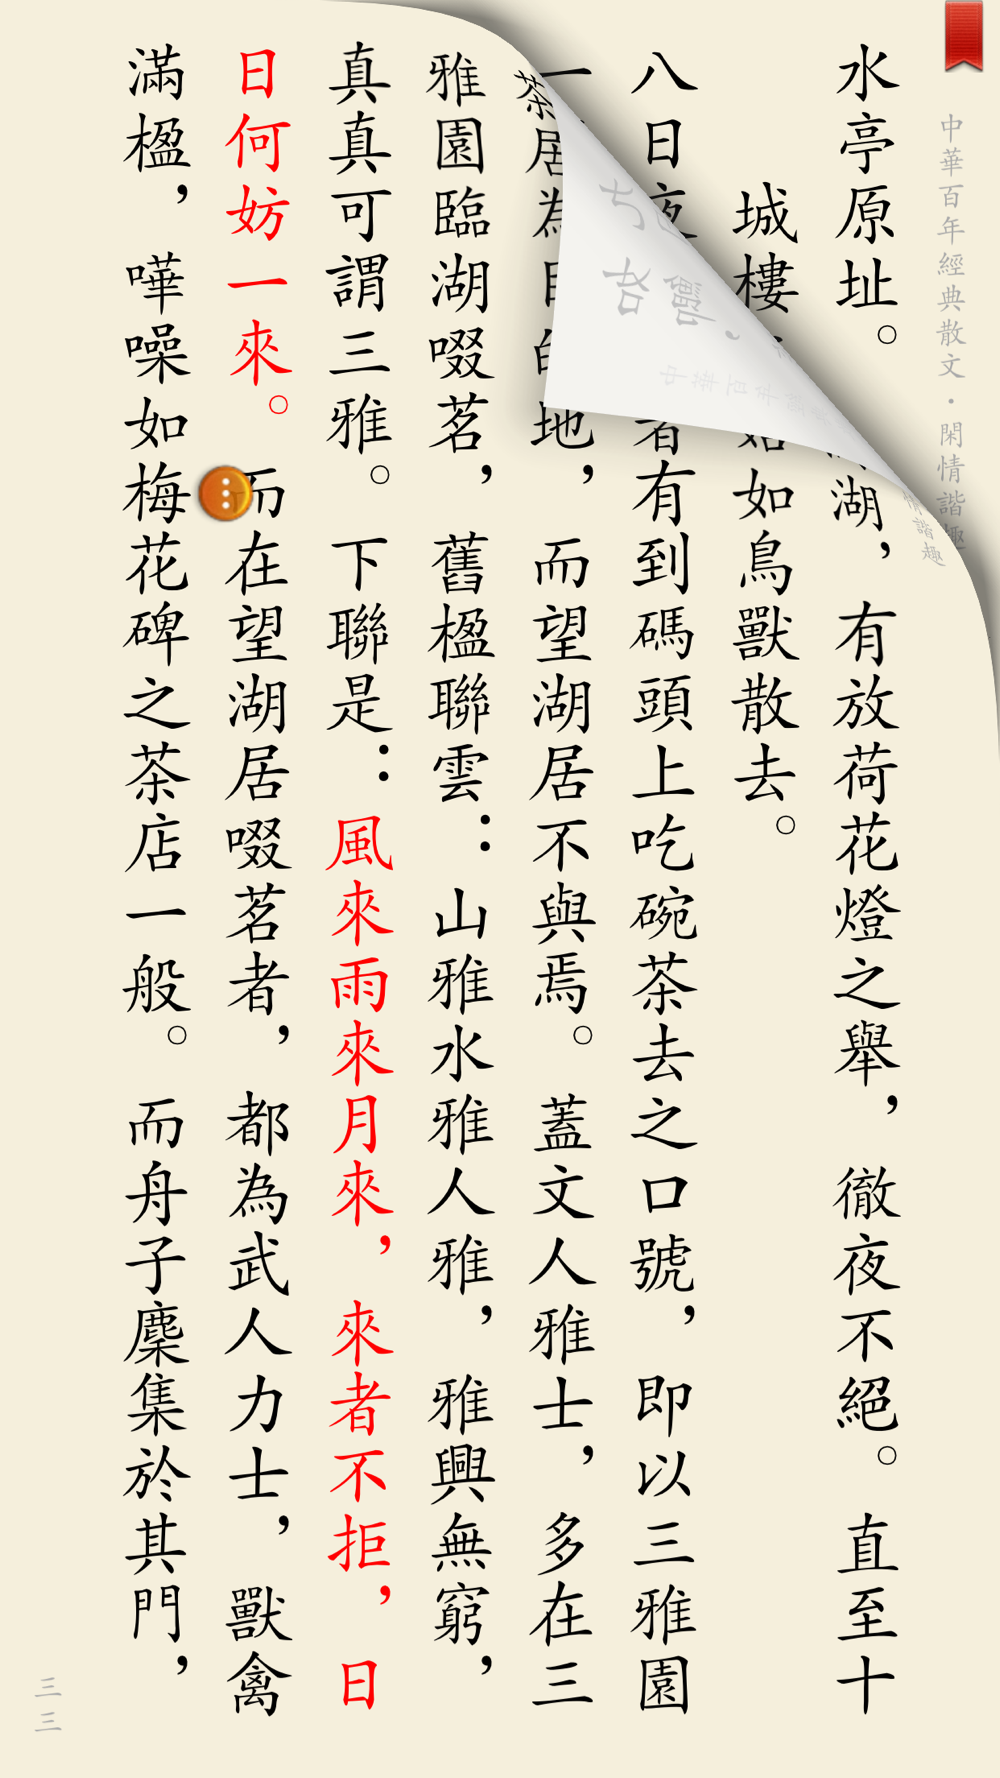 中華百年經典散文·閑情諧趣
水亭原址。湖，有放荷花燈之舉，徹夜不絕。直至十
城樓如鳥獸散去。
八日夜者有到碼頭上吃碗茶去之口號，即以三雅園
一居為目的地，而望湖居不與焉。蓋文人雅士，多在三
雅園臨湖啜茗，舊楹聯雲：山雅水雅人雅，雅興無窮，
真真可謂三雅。下聯是：風來雨來月來，來者不拒，日
日何妨一來。而在望湖居啜茗者，都為武人力士，獸禽
滿楹，嘩噪如梅花碑之茶店一般。而舟子麇集於其門，
茶
情諧趣
三三